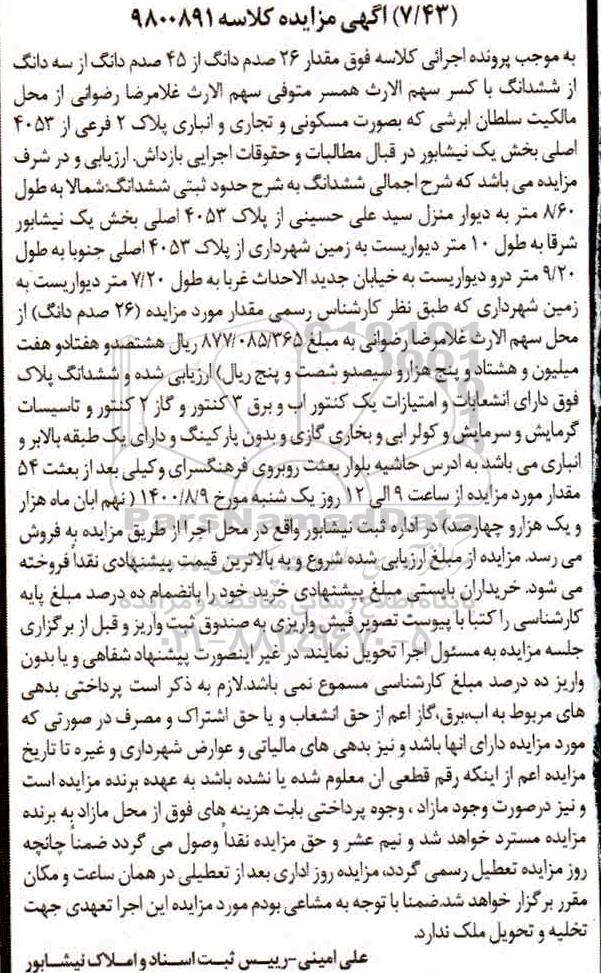 (۷/۴۳) آگهی مزایده کلاسه ۹۸۰۰۸۹۱
به موجب پرونده اجرائی کلاسه فوق مقدار ۲۶ صدم دانگ از ۴۵ صدم دانگ از سه دانگ
از ششدانگ با کسر سهم الارث همسر متوفی سهم الارث غلامرضا رضوانی از محل
مالکیت سلطان ابرشی که بصورت مسکونی و تجاری و انباری پلاک ۲ فرعی از ۴۰۵۳
اصلی بخش یک نیشابور در قبال مطالبات و حقوقات اجرایی بازداش. ارزیابی و در شرف
مزایده می باشد که شرح اجمالی ششدانگ به شرح حدود ثبتی ششدانگ:شمالا به طول
۸/۶۰ متر به دیوار منزل سید علی حسینی از پلاک ۴۰۵۳ اصلی بخش یک نیشابور
شرقا به طول ۱۰ متر دیواریست به زمین شهرداری از پلاک ۴۰۵۳ اصلی جنوبا به طول
۹/۲۰ متر درو دیواریست به خیابان جدید الاحداث غربا به طول ۷/۲۰ متر دیواریست به
زمین شهرداری که طبق نظر کارشناس رسمی مقدار مورد مزایده (۲۶ صدم دانگ) از
محل سهم الارث غلامرضا رضوانی به مبلغ ۸۷۷/۰۸۵/۳۶۵ ریال هشتصدو هفتادو هفت
میلیون و هشتاد و پنج هزارو سیصدو شصت و پنج ریال) ارزیابی شده و ششدانگ پلاک
فوق دارای انشعابات و امتیازات یک کنتور اب و برق ۳ کنتور و گاز ۲ کنتور و تاسیسات
گرمایش و سرمایش و کولر ابی و بخاری گازی و بدون پارکینگ و دارای یک طبقه بالابر و
انباری می باشد به ادرس حاشیه بلوار بعثت روبروی فرهنگسرای وکیلی بعد از بعثت ۵۴
مقدار مورد مزایده از ساعت ۹ الی ۱۲ روز یک شنبه مورخ ۱۴۰۰/۸/۹ ( نهم ابان ماه هزار
و یک هزارو چهارصد) در اداره ثبت نیشابور واقع در محل اجرا از طریق مزایده به فروش
می رسد. مزایده از مبلغ ارزیابی شده شروع و به بالاترین قیمت پیشنهادی نقداً فروخته
می شود. خریداران بایستی مبلغ پیشنهادی خرید خود را بانضمام ده درصد مبلغ پایه
کارشناسی را کتبا با پیوست تصویر فیش واریزی به صندوق ثبت واریز و قبل از برگزاری
جلسه مزایده به مسئول اجرا تحویل نمایند. در غیر اینصورت پیشنهاد شفاهی و یا بدون
واریز ده درصد مبلغ کارشناسی مسموع نمی باشد.لازم به ذکر است پرداختی بدهی
های مربوط به اب،برق،گاز اعم از حق انشعاب و یا حق اشتراک و مصرف در صورتی که
مورد مزایده دارای انها باشد و نیز بدهی های مالیاتی و عوارض شهرداری و غیره تا تاریخ
مزایده اعم از اینکه رقم قطعی ان معلوم شده یا نشده باشد به عهده برنده مزایده است
و نیز درصورت وجود مازاد ، وجوه پرداختی بابت هزینه های فوق از محل مازاد به برنده
مزایده مسترد خواهد شد و نیم عشر و حق مزایده نقداً وصول می گردد ضمناً چانچه
روز مزایده تعطیل رسمی گردد، مزایده روز اداری بعد از تعطیلی در همان ساعت و مکان
مقرر برگزار خواهد شد.ضمنا با توجه به مشاعی بودم مورد مزایده این اجرا تعهدی جهت
تخلیه و تحویل ملک ندارد.
علی امینی-رییس ثبت اسناد و املاک نیشابور
ParsNamadData
پایگاه اطلاع رسانی مناقصه و مزایده
۰۲۱-۸۸۳۴۹۶۷۰-۵